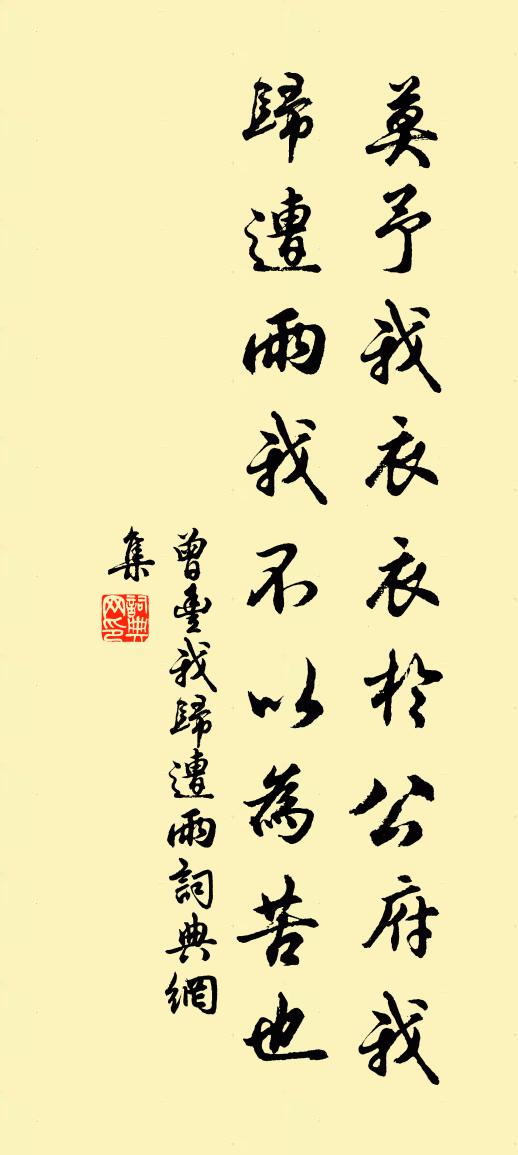 莫予我衣衣於公府我
歸遭雨我不以為苦也
曾豊我歸遭雨詞典網
集
詞典
网印